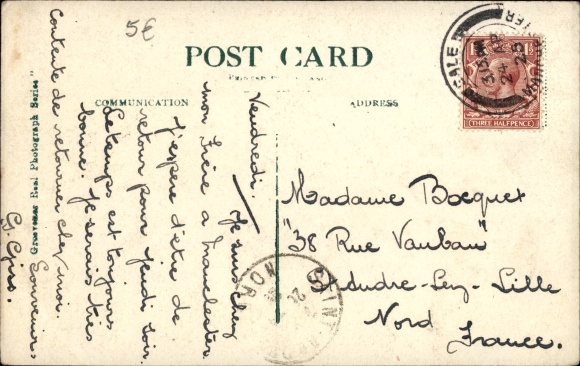 5€
POST CARD
COMMUNICATION
ADDRESS
Grosvenor Real Photograph Series"
SALE
3.15 PM
24 AP
25
THREE HALFPENCE
Vendredi.
Je suis chez
mon frère a Manchester.
J'espère d'être de
retour pour jeudi soir.
Le temps est toujours
bonne. Je serais très
contente de retourner chez moi.
Souvenirs
Madame Bocquet
"38 Rue Vauban"
St Andre-Lez-Lille
Nord France.
SAINT
NORD